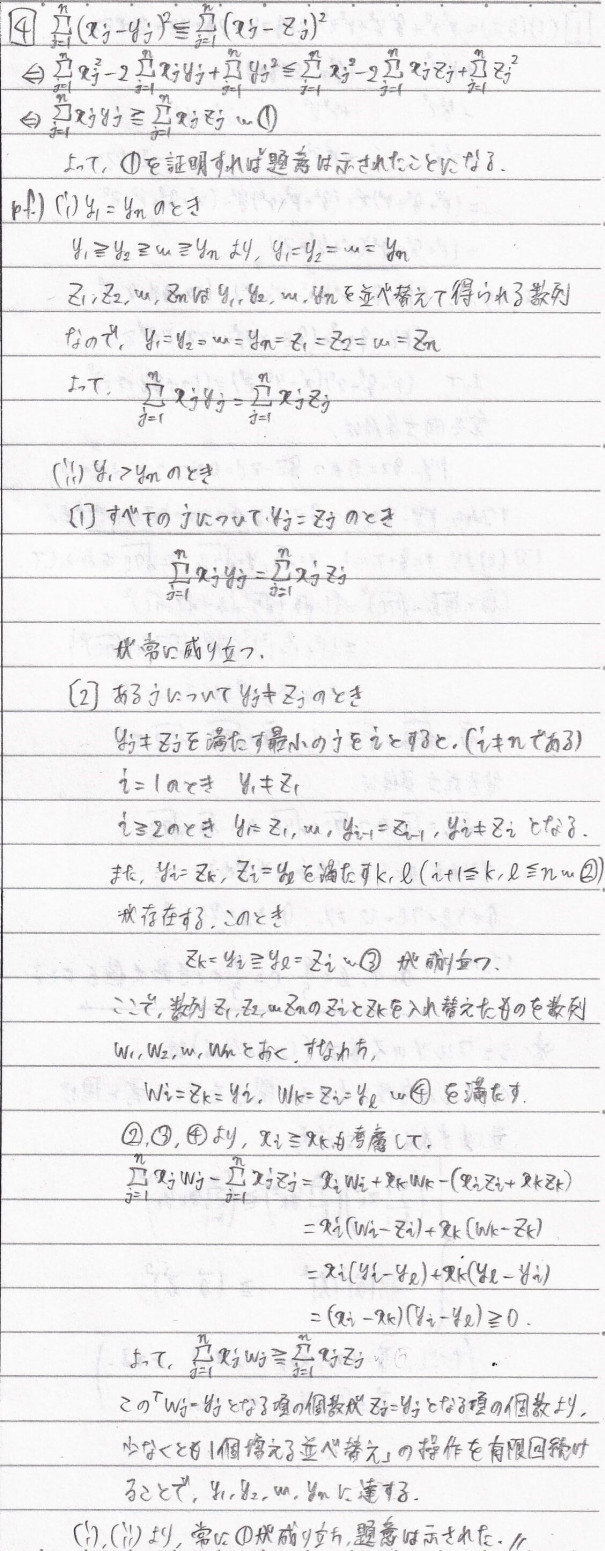 4 Σ_{j=1}^{n}(xj-yj)²≦Σ_{j=1}^{n}(xj-zj)²
⇔ Σ_{j=1}^{n}xj²-2Σ_{j=1}^{n}xjyj+Σ_{j=1}^{n}yj²≦Σ_{j=1}^{n}xj²-2Σ_{j=1}^{n}xjzj+Σ_{j=1}^{n}zj²
⇔ Σ_{j=1}^{n}xjyj≧Σ_{j=1}^{n}xjzj …①
よって, ①を証明すれば題意は示されたことになる.
pf.) (i) y₁=ynのとき
y₁≧y₂≧…≧ynより, y₁=y₂=…=yn
z₁,z₂,…,znはy₁,y₂,…,ynを並べ替えて得られる数列
なので, y₁=y₂=…=yn=z₁=z₂=…=zn
よって, Σ_{j=1}^{n}xjyj=Σ_{j=1}^{n}xjzj
(ii) y₁>ynのとき
[1] すべてのjについてyj=zjのとき
Σ_{j=1}^{n}xjyj=Σ_{j=1}^{n}xjzj
が常に成り立つ.
[2] あるjについてyj≠zjのとき
yj≠zjを満たす最小のjをiとすると, (i≠nである)
i=1のとき y₁≠z₁
i≧2のとき y₁=z₁,…,yi-1=zi-1, yi≠ziとなる.
また, yi=zk, zi=ylを満たすk, l (i+1≦k, l≦n…②)
が存在する. このとき
zk=yi≧yl=zi…③ が成り立つ.
ここで, 数列z₁,z₂,…znのziとzkを入れ替えたものを数列
w₁,w₂,…,wnとおく. すなわち,
wi=zk=yi, wk=zi=yl…④ を満たす.
②,③,④より, xi≧xkも考慮して,
Σ_{j=1}^{n}xjwj-Σ_{j=1}^{n}xjzj=xiwi+xkwk-(xizi+xkzk)
=xi(wi-zi)+xk(wk-zk)
=xi(yi-yl)+xk(yl-yi)
=(xi-xk)(yi-yl)≧0.
よって, Σ_{j=1}^{n}xjwj≧Σ_{j=1}^{n}xjzj
この「wj=yjとなる項の個数がzj=yjとなる項の個数より,
少なくとも1個増える並べ替え」の操作を有限回続け
ることで, y₁,y₂,…,ynに達する.
(i),(ii)より, 常に①が成り立ち, 題意は示された.//